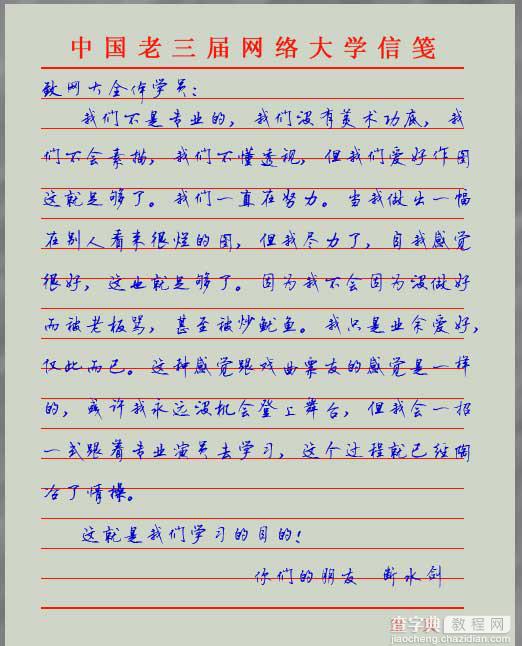 中国老三届网络大学信笺
致网大全体学员：
我们不是专业的，我们没有美术功底，我
们不会素描，我们不懂透视，但我们爱好作图
这就足够了。我们一直在努力。当我做出一幅
在别人看来很烂的图，但我尽力了，自我感觉
很好，这也就足够了。因为我不会因为没做好
而被老板骂，甚至被炒鱿鱼。我只是业余爱好，
仅此而已。这种感觉跟戏曲票友的感觉是一样
的，或许我永远没机会登上舞台，但我会一招
一式跟着专业演员去学习，这个过程就已经陶
冶了情操。
这就是我们学习的目的！
你们的朋友 断水剑
查字典 教程网
jiaocheng.chazidian.com